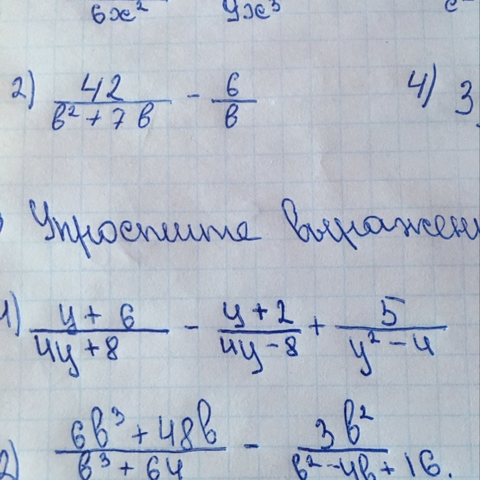 6x² 4x³
2) 42/(b² + 7b) - 6/b 4) 3
Упростите выражен
1) (y + 6)/(4y + 8) - (y + 2)/(4y - 8) + 5/(y² - 4)
2) (6b³ + 48b)/(b³ + 64) - 3b²/(b² - 4b + 16).